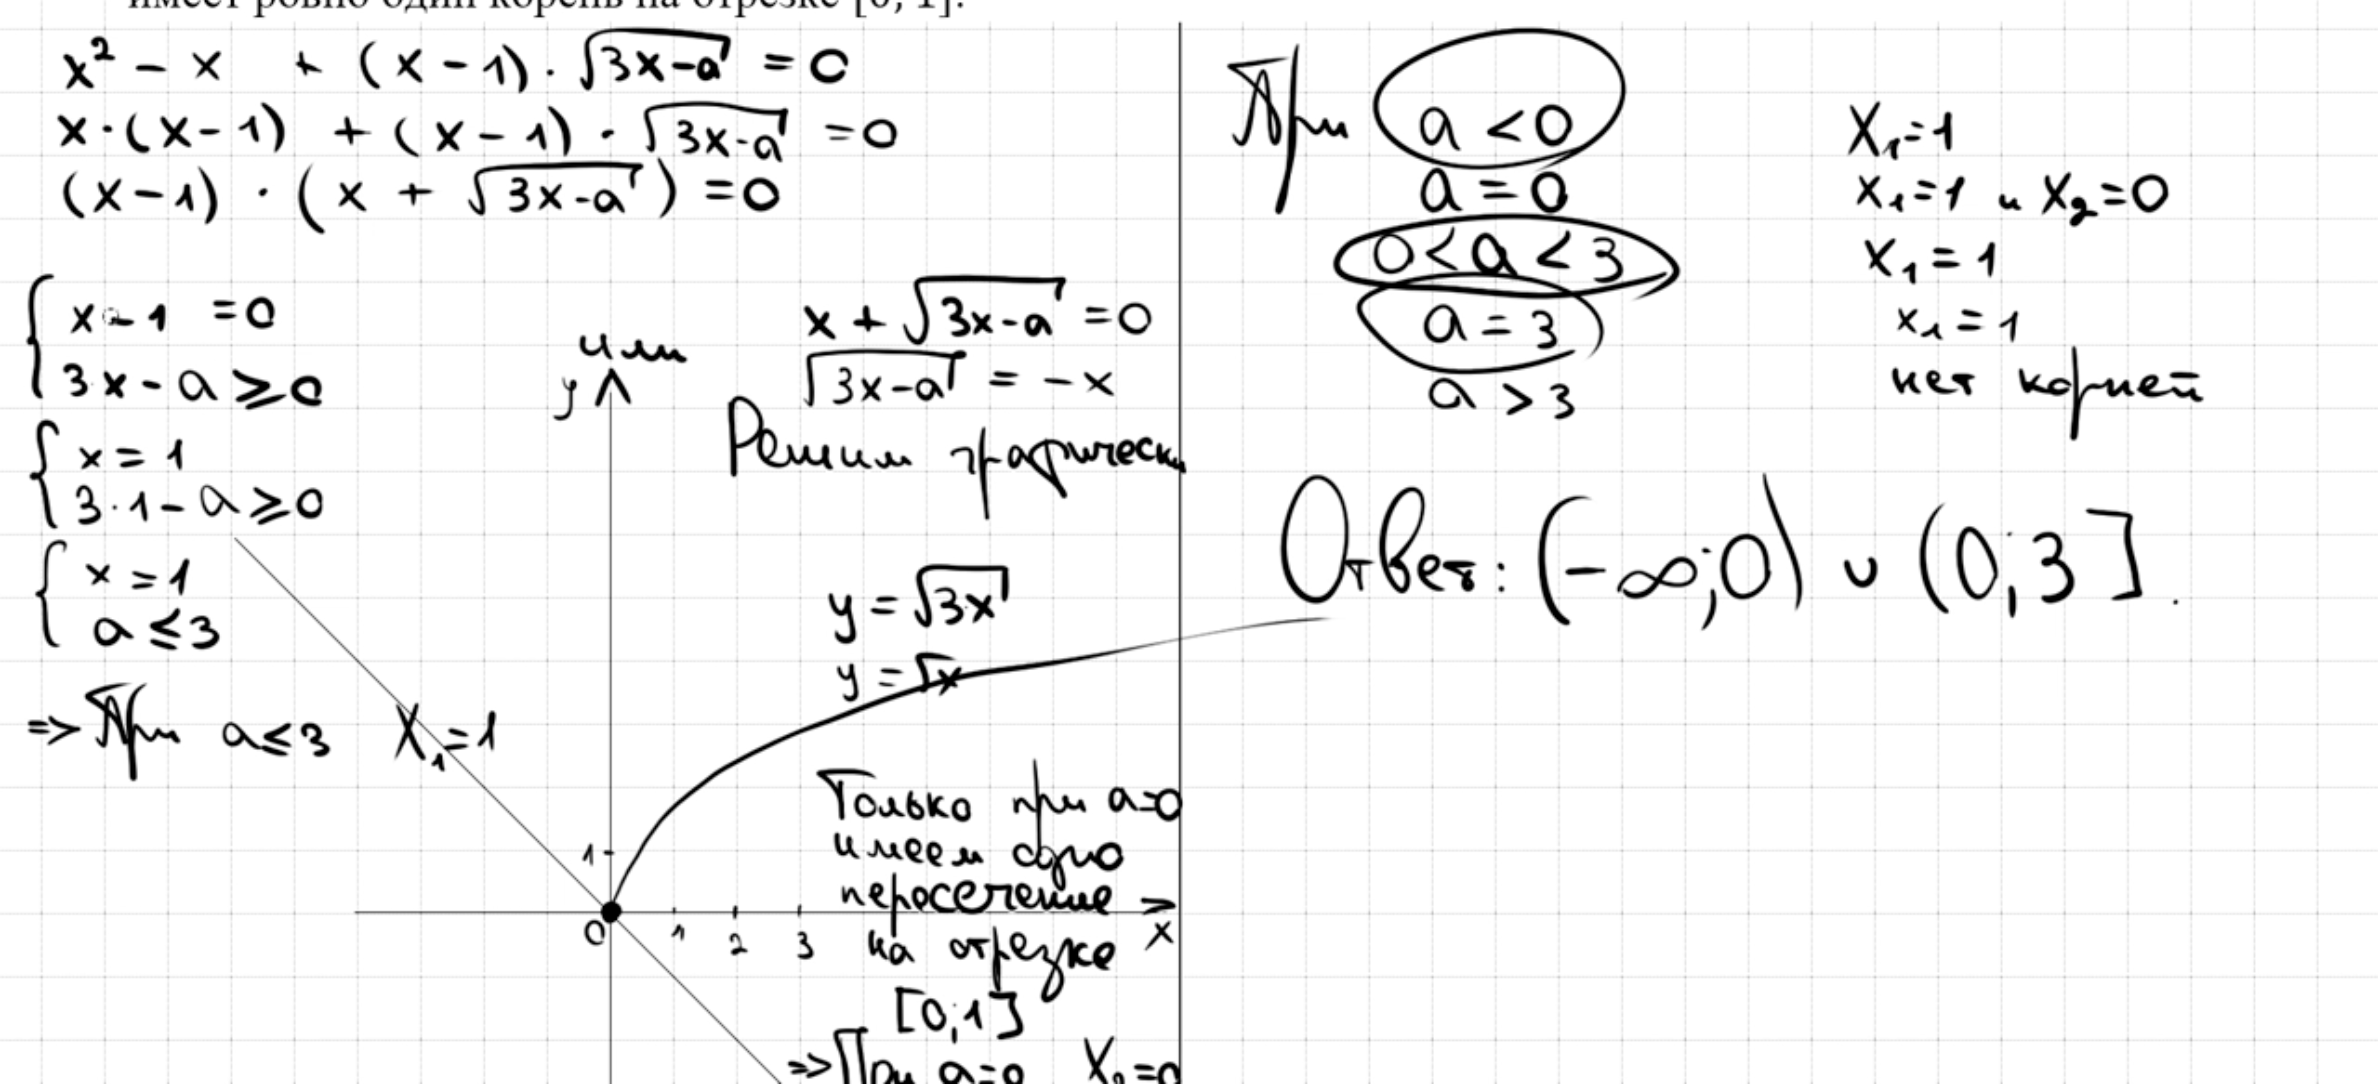 имеет ровно один корень на отрезке [0; 1].
x² - x + (x - 1) · √(3x-a) = 0
x · (x - 1) + (x - 1) · √(3x-a) = 0
(x - 1) · (x + √(3x-a)) = 0
{ x - 1 = 0
3x - a ≥ 0
{ x = 1
3·1 - a ≥ 0
{ x = 1
a ≤ 3
=> При a ≤ 3 X₁ = 1
или
x + √(3x-a) = 0
√(3x-a) = -x
Решим графически
y
y = √3x
y = √x
1
0 1 2 3
x
Только при a=0
имеем одно
пересечение
на отрезке
[0;1]
=> При a=0 X₂=0
При a < 0 X₁=1
a = 0 x₁=1 и x₂=0
0 < a < 3 x₁ = 1
a = 3 x₁ = 1
a > 3 нет корней
Ответ: (-∞;0) ∪ (0;3].